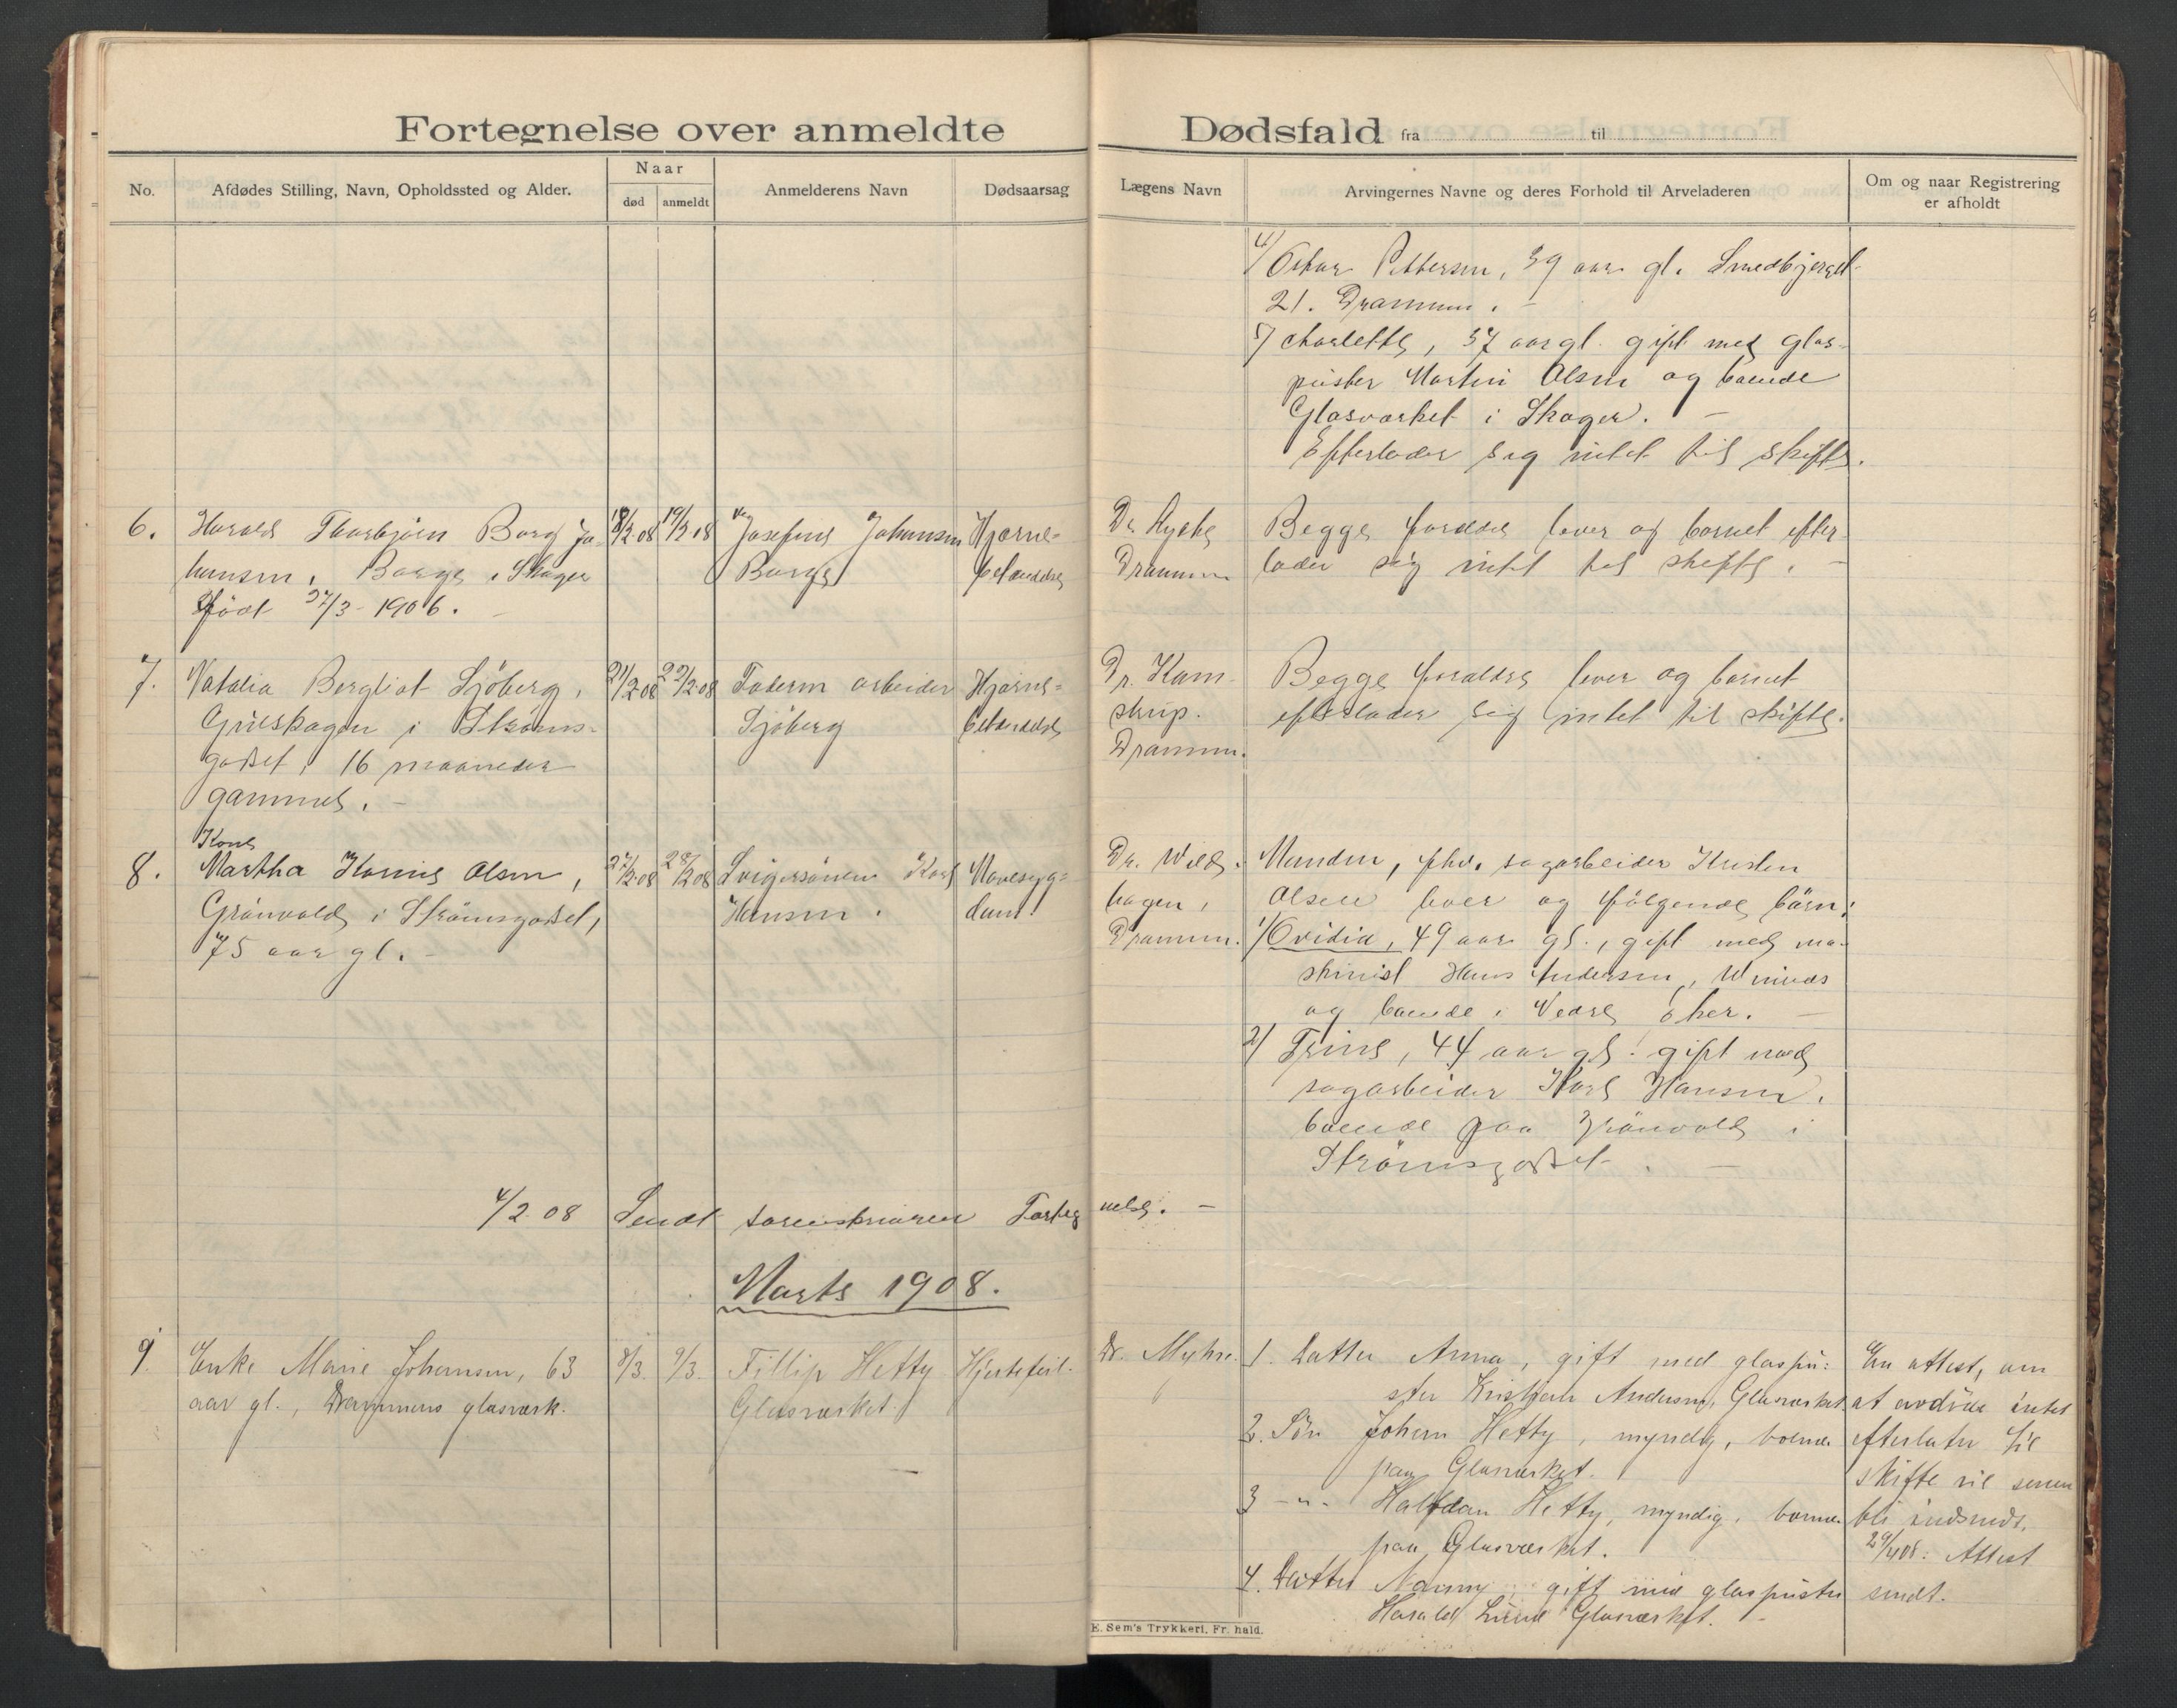 Fortegnelse over anmeldte Dødsfald fra til
No.
Afdødes Stilling, Navn, Opholdssted og Alder.
Naar
død
anmeldt
Anmelderens Navn
Dødsaarsag
Lægens Navn
Arvingernes Navne og deres Forhold til Arveladeren
Om og naar Registrering
er afholdt
4/ Oskar Pettersen, 39 aar gl. Smedbjerget
21. Drammen. -
5/ Charlotte, 37 aar gl. gift med glas-
puster Martin Olsen og boende
Glasværket i Skoger. -
Efterlader sig intet til skifte.
6.
Harald Thorbjørn Borg Jo-
hansen, Borge i Skoger
født 27/3-1906. -
18/2.08
19/2 08
Josefine Johansen
Borge
Hjerne-
betændelse
Dr. Rycke
Drammen
Begge forældre lever og barnet efter-
lader sig intet til skifte. -
7.
Natalia Bergliot Sjöberg,
Grüskagen i Ströms-
godset, 16 maaneder
gammel. -
21/2 08
22/2.08
Faderen arbeider
Sjöberg
Hjerne-
betændelse
Dr. Kam-
strup.
Drammen.
Begge forældre lever og barnet
efterlader sig intet til skifte.
8.
Kone
Martha Karine Olsen,
Grönvold i Strömsgodset,
75 aar gl. -
27/2.08
28/2 08
Svigersönnen Karl
Hansen.
Mavesyg-
dom.
Dr. Wild-
hagen,
Drammen.
Manden, fhv. sagarbeider Kristen
Olsen lever og fölgende börn:
1/ Ovidia, 49 aar gl., gift med ma-
skinist Hans Andersen,
og boende i Vedre öker. -
2/ Trine, 44 aar gl. gift med
sagarbeider Karl Hansen.
boende paa Grönvold i
Strömsgodset. -
4/2 08 Sendt sorenskriveren Forteg nelse. -
Marts 1908.
9.
Enke Marie Johansen, 63
aar gl., Drammens glasværk.
8/3.
9/3.
Fillip Hetty
Glasværket.
Hjertefeil.
Dr. Myhre.
1. Datter Anna, gift med glaspu-
ster Kristian Andersen, Glasværket.
2. Sön Johan Hetty, myndig, boende
paa Glasværket.
3 -"- Halfdan Hetty, myndig, boende
paa Glasværket.
4. Datter Nanny gift med glaspuster
Harald Lund Glasværket. -
En attest, om
at avdöde intet
efterlater til
skifte vil senere
bli indsendt.
29/4 08: Attest
sendt.
E. Sem's Trykkeri, Fr. hald.